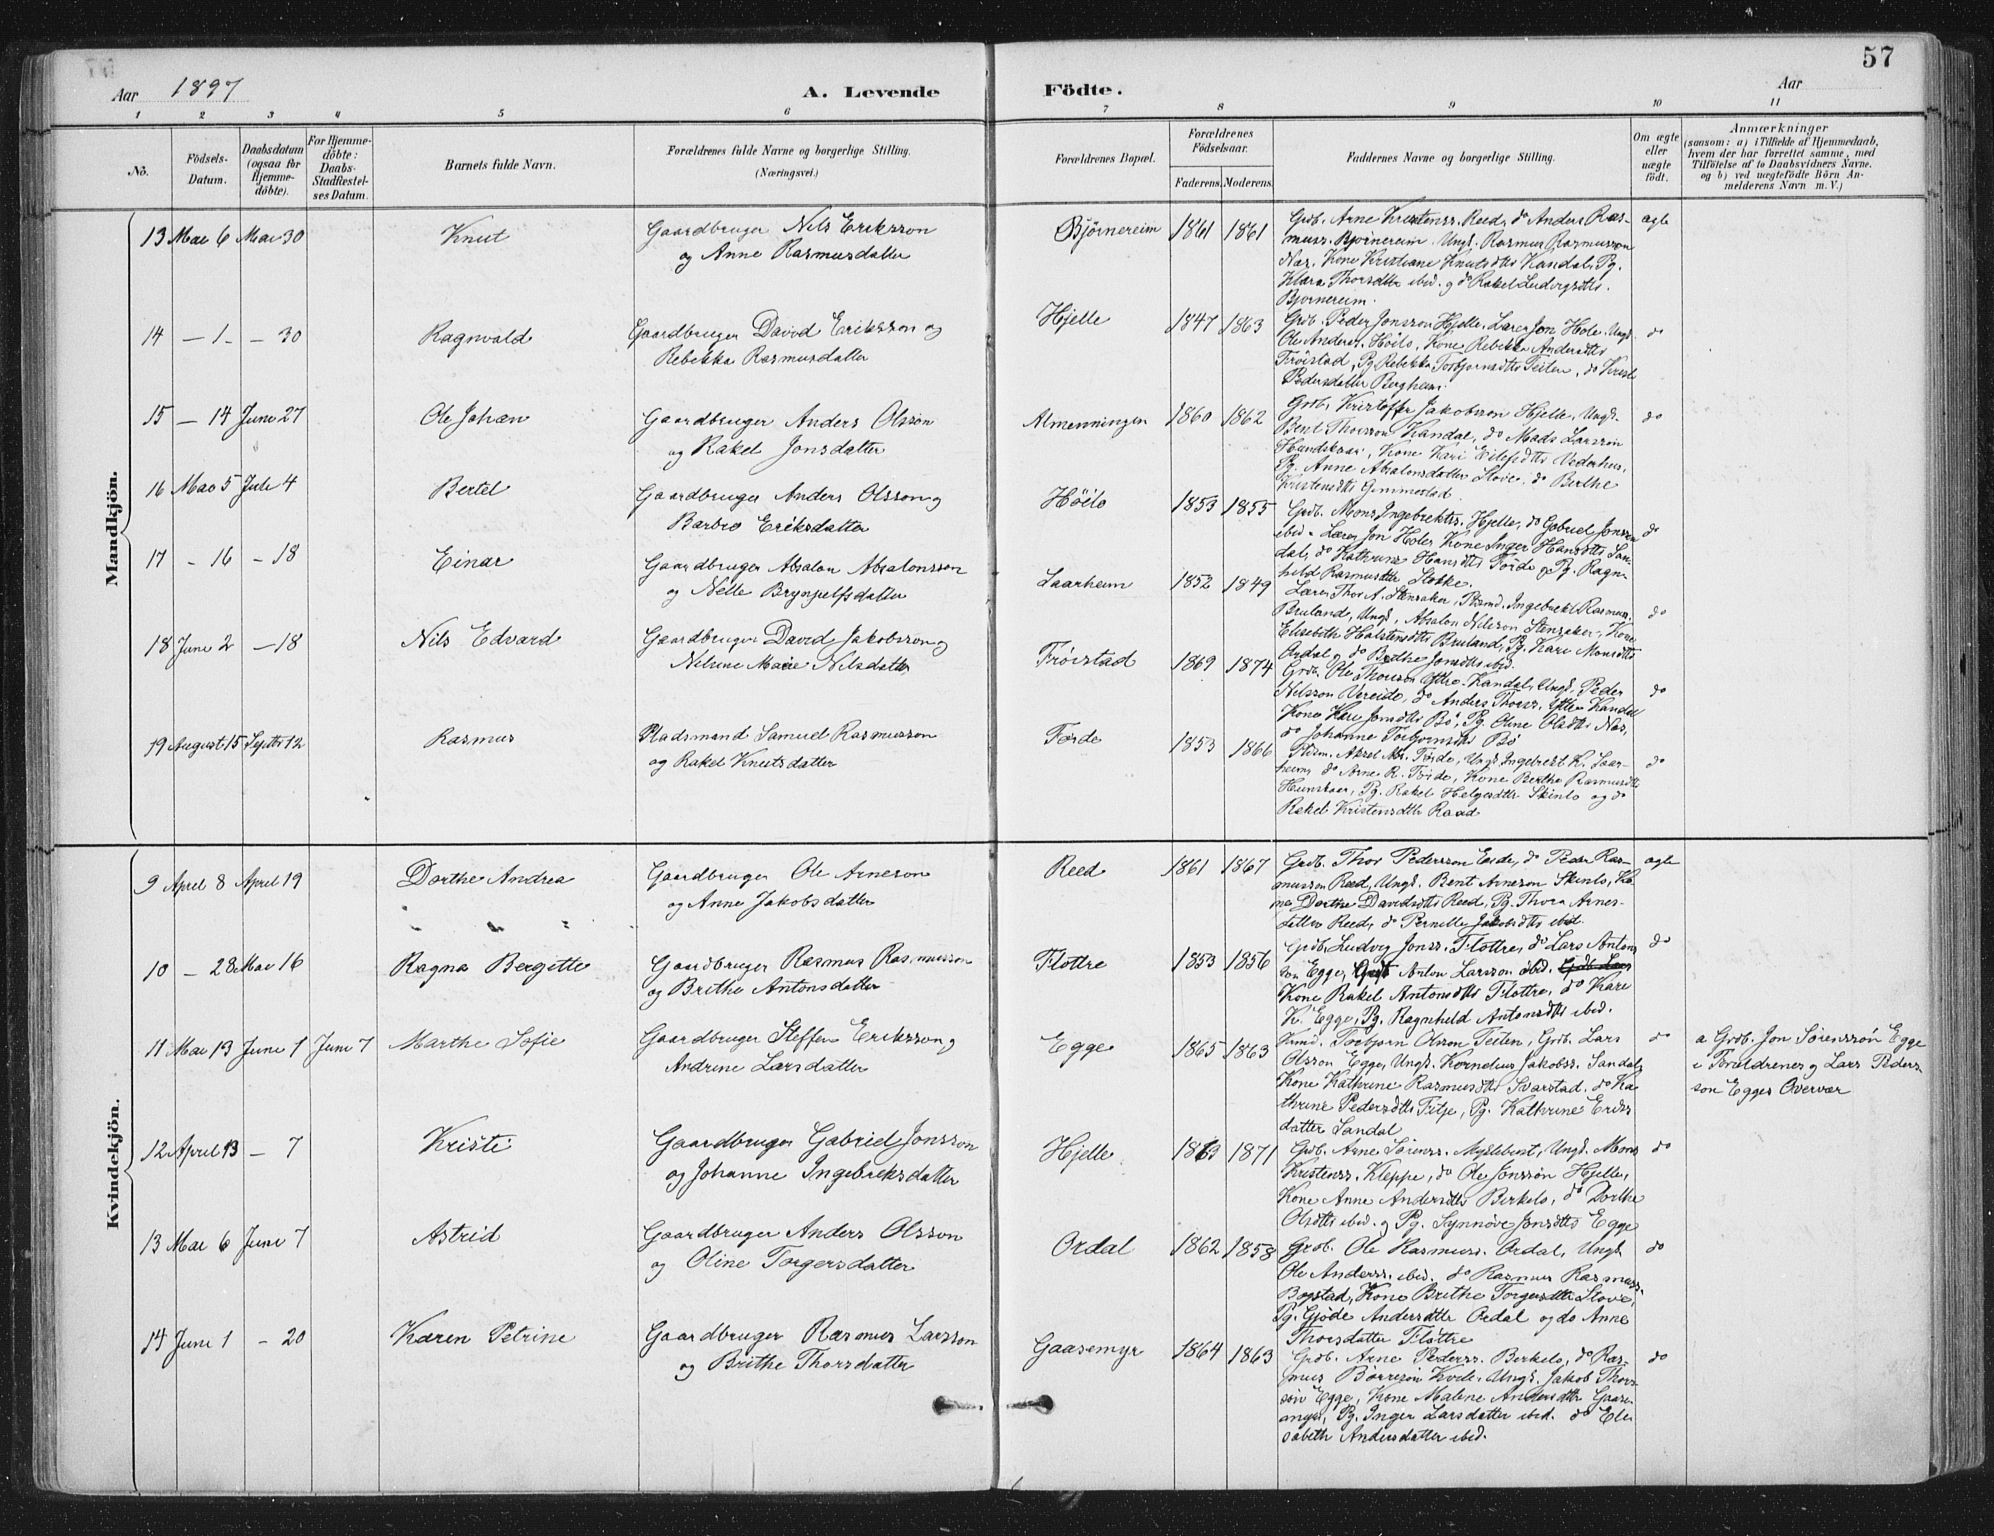 57
Aar 1897 A. Levende Födte. Aar
1 2 3 4 5 6 7 8 9 10 11
No. Födsels-Datum. Daabsdatum (ogsaa for Hjemme-döbte). For Hjemme-döbte: Daabs-Stadfæstel-ses Datum. Barnets fulde Navn. Forældrenes fulde Navne og borgerlige Stilling. (Næringsvei.) Forældrenes Bopæl. Forældrenes Födselsaar. Faderens. Moderens. Faddernes Navne og borgerlige Stilling. Om ægte eller uægte födt. Anmærkninger (saasom: a) i Tilfælde af Hjemmedaab, hvem der har forrettet samme, med Tilföielse af to Daabsvidners Navne. og b) ved uægtefödte Börn An-melderens Navn m. V.)
Mandkjön.
13 Mai 6 Mai 30 Knut Gaardbruger Nils Eriksson
og Anne Rasmusdatter Bjørnereim 1861 1861 Grdb. Arne Kristenss. Reed, do Anders Ras-
muss. Bjørnereim. Ungk. Rasmus Rasmusson
Nas. Kone Kristiane Knutsdtts Kandal, Pg.
Klara Thorsdtter ibid. og do Rakel Ludvigsdtts.
Bjørnereim. ægte
14 — 1 — 30 Ragnvald Gaardbruger David Eriksson og
Rebekka Rasmusdatter Hjelle 1847 1863 Grdb. Peder Jonsson Hjelle, Lærer Jon Hole, Ungk.
Ole Anderss. Höilo, Kone Rebekka Andersdtts
Tröistad, Pg. Rebekka Torbjørnsdtts Teiten, do Kristi
Pedersdatter Bergheim. do
15 — 14 Juni 27 Ole Johan Gaardbruger Anders Olsson
og Rakel Jonsdatter Almenningen 1860 1862 Grdb. Kristoffer Jakobsson Hjelle, Ungk.
Bent Thorsson Kandal, do Mads Larsson
Hundskaar, Kone Kari Eilefsdtts Vederhus,
Pg. Anne Absalonsdatter Stove, do Berthe
Kristensdtts Gimmestad. do
16 Mai 5 Juli 4 Bertel Gaardbruger Anders Olsson og
Barbro Eriksdatter Höilo 1853 1855 Grdb. Mons Ingebrektss. Hjelle, do Gabriel Jonsson
ibid. Lærer Jon Hole, Kone Inger Hansdtts San-
dal, do Kathrine Hansdtts Förde og Pg. Ragn-
hild Rasmusdtter Stokke. do
17 — 16 — 18 Einar Gaardbruger Absalon Absalonsson
og Nelle Brynjelfsdatter Laarheim 1852 1849 Lærer Thor A. Stensaker, Pladsmd. Ingebrekt Rasmuss.
Bruland, Ungk. Absalon Nilsson Stensaker, Kone
Elisabeth Halstensdtts Bruland, Pg. Kari Monsdtts
Ordal og do Brithe Jonsdtts ibid. do
18 Juni 2 — 18 Nils Edvard Gaardbruger David Jakobsson og
Nilsine Marie Nilsdatter Tröistad 1869 1874 Grdb. Ole Thorsson Ytre Kandal, Ungk. Peder
Nilsson Vereide, do Anders Thorss. Ytre Kandal
Kone Kari Jonsdtts Bö, Pg. Oline Olsdtts Nas,
do Johanne Torbjørnsdtts Bö do
19 August 15 Septbr 12 Rasmus Pladsmand Samuel Rasmusson
og Rakel Knutsdatter Förde 1853 1866 Pladsm. Aksel Abr. Förde, Ungk. Ingebrekt K. Laar-
heim, do Arne R. Förde, Kone Berthe Rasmusdtts
Hunskaar, Pg. Rakel Helgesdtts Skinlo og do
Rakel Kristensdtts Raad do
Kvindekjön.
9 April 8 April 19 Dorthe Andrea Gaardbruger Ole Arneson
og Anne Jakobsdatter Reed 1861 1867 Grdb. Thor Pedersson Eide, do Peder Ras-
musson Reed, Ungk. Bent Arneson Skinlo, Ko-
ne Dorthe Davidsdtts Reed, Pg. Thora Arnes-
datter Reed, do Pernille Jakobsdtts ibid. ægte
10 — 28 Mai 16 Ragna Bergitte Gaardbruger Rasmus Rasmusson
og Brithe Antonsdatter Flöttre 1853 1856 Grdb. Ludvig Jonss. Flottre, do Lars Antons-
son Egge, Ungk. Anton Larsson ibid. Grdb. Lars
Kone Rakel Antonsdtts Flottre, do Kari
K. Egge, Pg. Ragnhild Antonsdtts ibid. do
11 Mai 13 Juni 1 Juni 7 Marthe Sofie Gaardbruger Steffen Eriksson og
Andrine Larsdatter Egge 1865 1863 Torbjørn Olsson Teiten, Grdb. Lars
Olsson Egge, Ungk. Kornelius Jakobss. Sandal,
Kone Kathrine Rasmusdtts Svarstad, do Ka-
thrine Pedersdtts Fitje, Pg. Kathrine Eriks-
datter Sandal do a Grdb. Jon Sörensson Egge
i Forældrenes og Lars Peders-
son Egges Overvær
12 April 13 — 7 Kristi Gaardbruger Gabriel Jonsson
og Johanne Ingebriktsdatter Hjelle 1863 1871 Grdb. Arne Sörenss. Myklebust, Ungk. Mons
Kristenss. Kleppe, do Ole Jonsson Hjelle,
Kone Anne Andersdtts Birkelo, do Dorthe
Olsdtts ibid. og Pg. Synnöve Jonsdtts Egge do
13 Mai 6 Juni 7 Astrid Gaardbruger Anders Olsson
og Oline Torgersdatter Ordal 1862 1858 Grdb. Ole Rasmuss. Ordal, Ungk.
Ole Anderss. ibid. do Rasmus Rasmuss.
Bogstad, Kone Brithe Torgersdtts Stove,
Pg. Gjøde Andersdtts Ordal og do Anne
Thorsdatter Flöttre do
14 Juni 1 — 20 Karen Petrine Gaardbruger Rasmus Larsson
og Brithe Thorsdatter Gaasemyr 1864 1863 Grdb. Arne Pederss. Birkelo, do Ras-
mus Börreson Kvile, Ungk. Jakob Thors-
son Egge, Kone Malene Andersdtts Gaase-
myr, Pg. Inger Larsdatter ibid. do Eli-
sabeth Andersdatter ibid. do